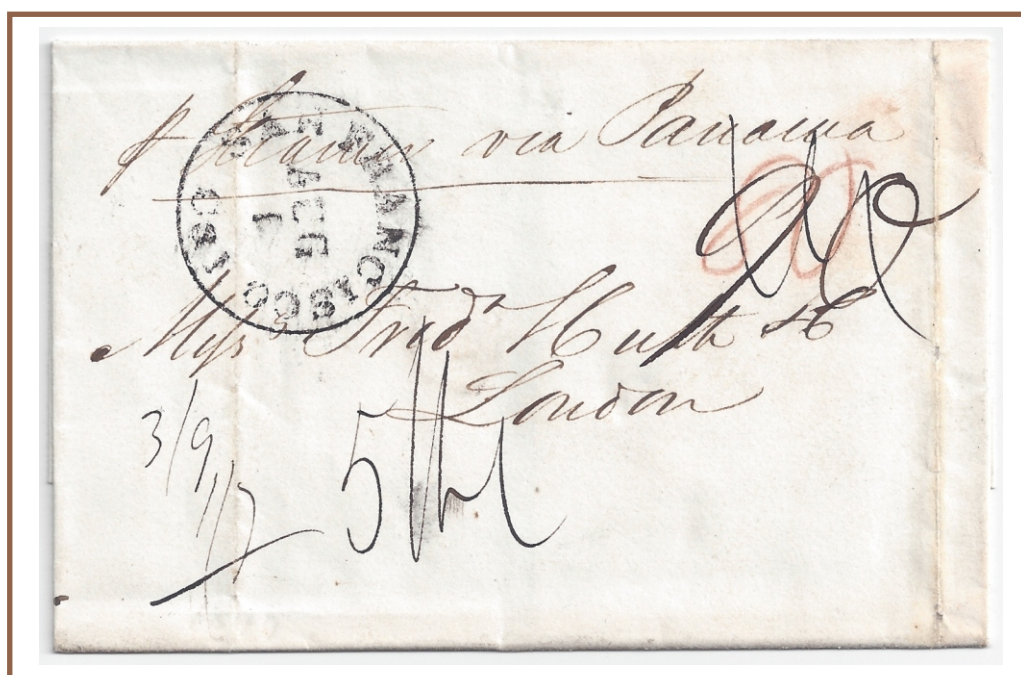 p Steamer via Panama
SAN FRANCISCO CAL
AUG
1
Messrs Fredk Huth & Co
London
3/9
1/7
5/4